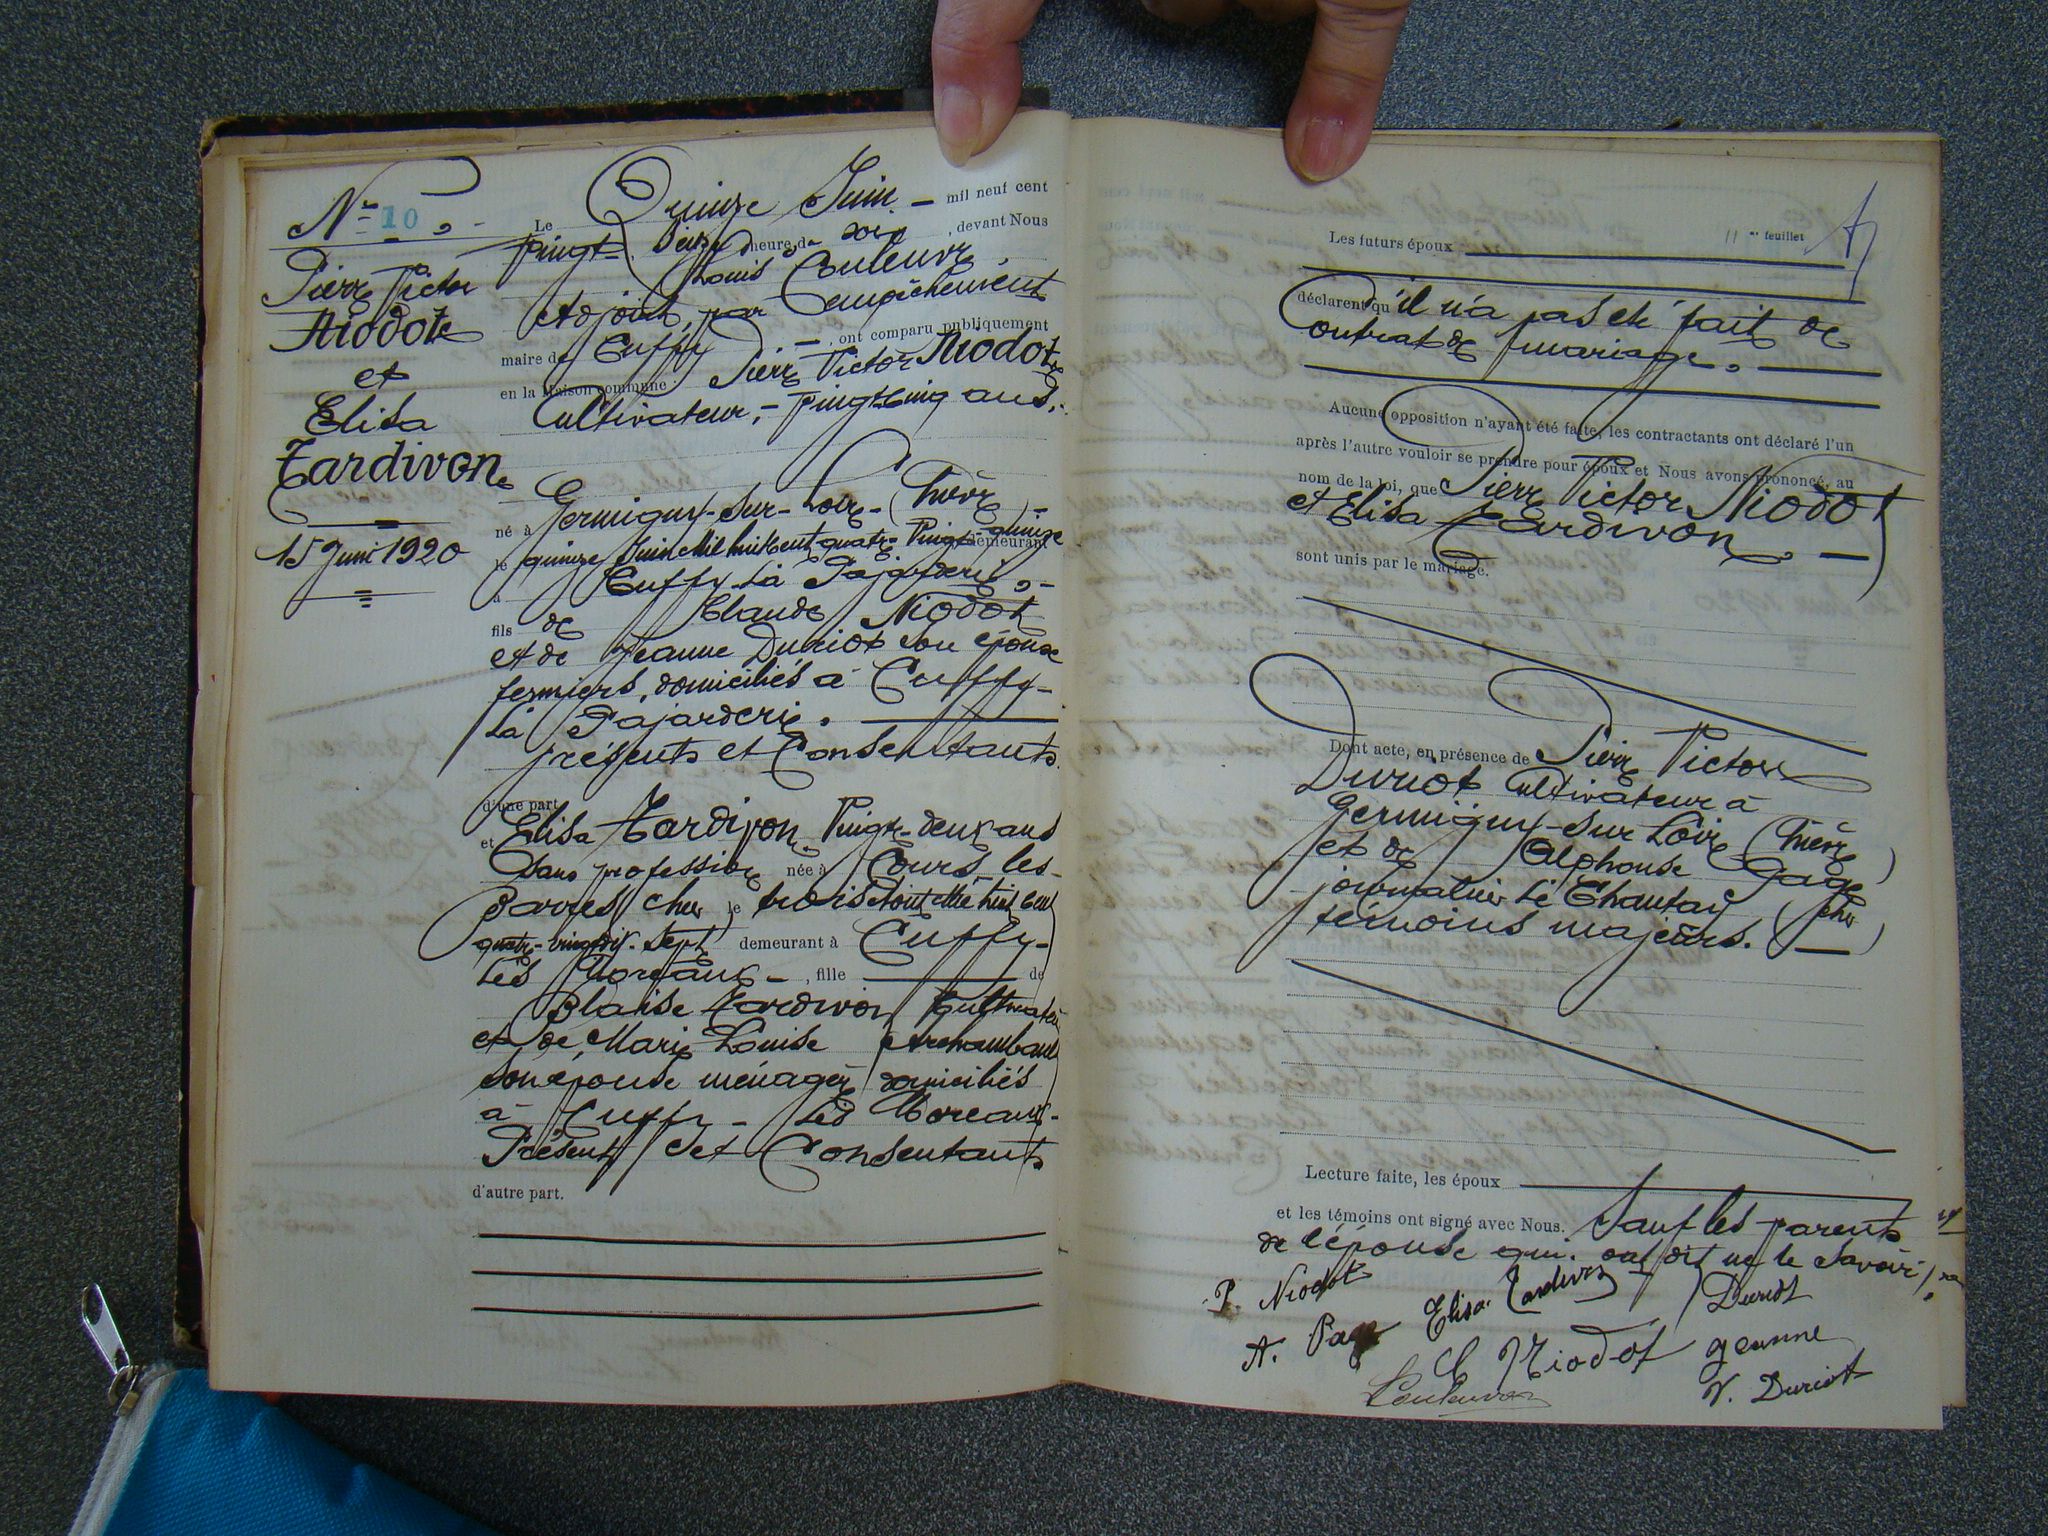 N° 10
Pierre Victor
Niodot
et
Elisa
Tardivon
15 Juin 1920
Le Quinze Juin – mil neuf cent
vingt, heure du soir, devant Nous
Louis Couleuvre
Adjoint par empêchement
maire de Cuffy –, ont comparu publiquement
en la Maison commune Pierre Victor Niodot
Cultivateur, – vingt-cinq ans,
né à Germigny-sur-Loire – (Nièvre)
le quinze Juin Mil huit cent quatre-vingt-quinze demeurant
à Cuffy La Pajarderie, –
fils de Claude Niodot
et de Jeanne Duriot son épouse
fermiers, domiciliés à Cuffy –
La Pajarderie.
présents et Consentants.
d'une part
et Elisa Tardivon. Vingt-deux ans
Sans profession née à Cours-les-
Barres (Cher) le trois Août Mil huit cent
quatre-vingt-dix-sept demeurant à Cuffy –
Les Moreaux –, fille de
Blaise Tardivon Cultivateur
et de Marie Louise Archambault
son épouse ménagère domiciliés
à Cuffy – Les Moreaux –
Présents et Consentants
d'autre part.
11me feuillet
Les futurs époux
déclarent qu'il n'a pas été fait de
contrat de mariage.
Aucune opposition n'ayant été faite, les contractants ont déclaré l'un
après l'autre vouloir se prendre pour époux et Nous avons prononcé, au
nom de la loi, que Pierre Victor Niodot
et Elisa Tardivon. –
sont unis par le mariage.
Dont acte, en présence de Pierre Victor
Duriot Cultivateur à
Germigny-sur-Loire (Nièvre)
et de Alphonse Page
journalier Le Chautay (Cher)
témoins majeurs. –
Lecture faite, les époux
et les témoins ont signé avec Nous. Sauf les parents
de l'épouse qui ont dit ne le savoir.
P. Niodot
Elisa Tardivon
Duriot
A. Page
C Niodot
Jeanne
Couleuvre
V. Duriot